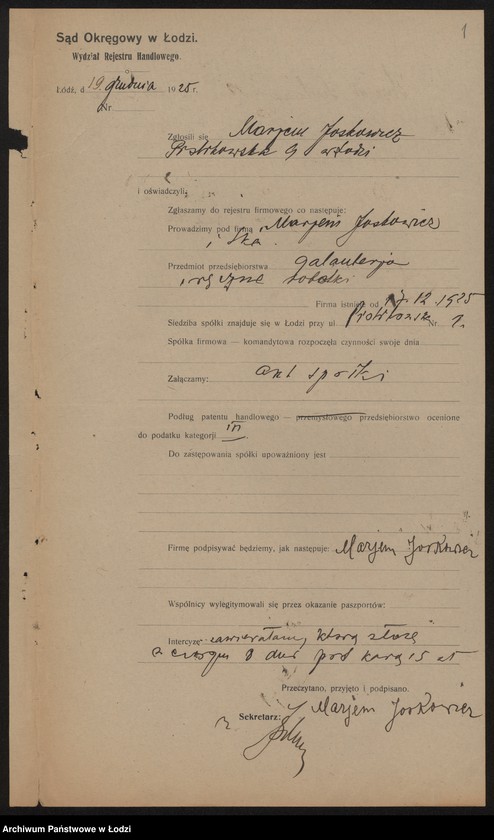 1
Sąd Okręgowy w Łodzi.
Wydział Rejestru Handlowego.
Łódź, d. 19 grudnia 1925 r.
Nr
Zgłosili się Marjem Joskowicz
Piotrkowska 9 w Łodzi
i oświadczyli:
Zgłaszamy do rejestru firmowego co następuje:
Prowadzimy pod firmą „Marjem Joskowicz
i Ska.
Przedmiot przedsiębiorstwa galanterja
i ręczne robótki
Firma istnieje od 12.1925
Siedziba spółki znajduje się w Łodzi przy ul. Piotrkowsk Nr. 9.
Spółka firmowa — komandytowa rozpoczęła czynności swoje dnia
Załączamy: akt spółki
Podług patentu handlowego — przemysłowego przedsiębiorstwo ocenione
do podatku kategorji III
Do zastępowania spółki upoważniony jest
Firmę podpisywać będziemy, jak następuje: Marjem Joskowicz
Wspólnicy wylegitymowali się przez okazanie paszportów:
Intercyzę zawierałam, którą złożę
w ciągu 8 dni pod karą 15 zł
Przeczytano, przyjęto i podpisano.
Marjem Joskowicz
Sekretarz:
Archiwum Państwowe w Łodzi